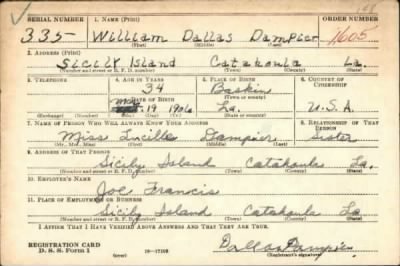 SERIAL NUMBER 1. NAME (Print) ORDER NUMBER
335- William Dallas Dampier 1605
(First) (Middle) (Last)
2. ADDRESS (Print)
Sicily Island Catahoula La.
(Number and street or R. F. D. number) (Town) (County) (State)
3. TELEPHONE 4. AGE IN YEARS 5. PLACE OF BIRTH 6. COUNTRY OF CITIZENSHIP
34 Baskin
DATE OF BIRTH (Town or county)
19 1906 La. U.S.A.
(Exchange) (Number) (Mo.) (Day) (Yr.) (State or country)
7. NAME OF PERSON WHO WILL ALWAYS KNOW YOUR ADDRESS 8. RELATIONSHIP OF THAT PERSON
Miss Lucille Dampier Sister
(Mr., Mrs., Miss) (First) (Middle) (Last)
9. ADDRESS OF THAT PERSON
Sicily Island Catahoula La.
(Number and street or R. F. D. number) (Town) (County) (State)
10. EMPLOYER'S NAME
Joe Francis
11. PLACE OF EMPLOYMENT OR BUSINESS
Sicily Island Catahoula La
(Number and street or R. F. D. number) (Town) (County) (State)
I AFFIRM THAT I HAVE VERIFIED ABOVE ANSWERS AND THAT THEY ARE TRUE.
REGISTRATION CARD
D. S. S. Form 1 16-17105 Dallas Dampier
(Registrant's signature)